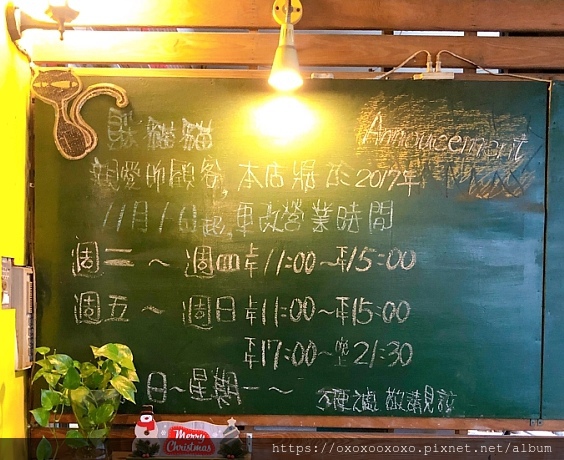 躲貓貓 Annoucement
親愛的顧客,本店將於2017年
11月1日起,更改營業時間
週二～週四 上午11:00～下午15:00
週五～週日 上午11:00～下午15:00
下午17:00～晚上21:30
日～星期一～ 不便之處 敬請見諒
Merry
Christmas
https://oxoxooxoxo.pixnet.net/album